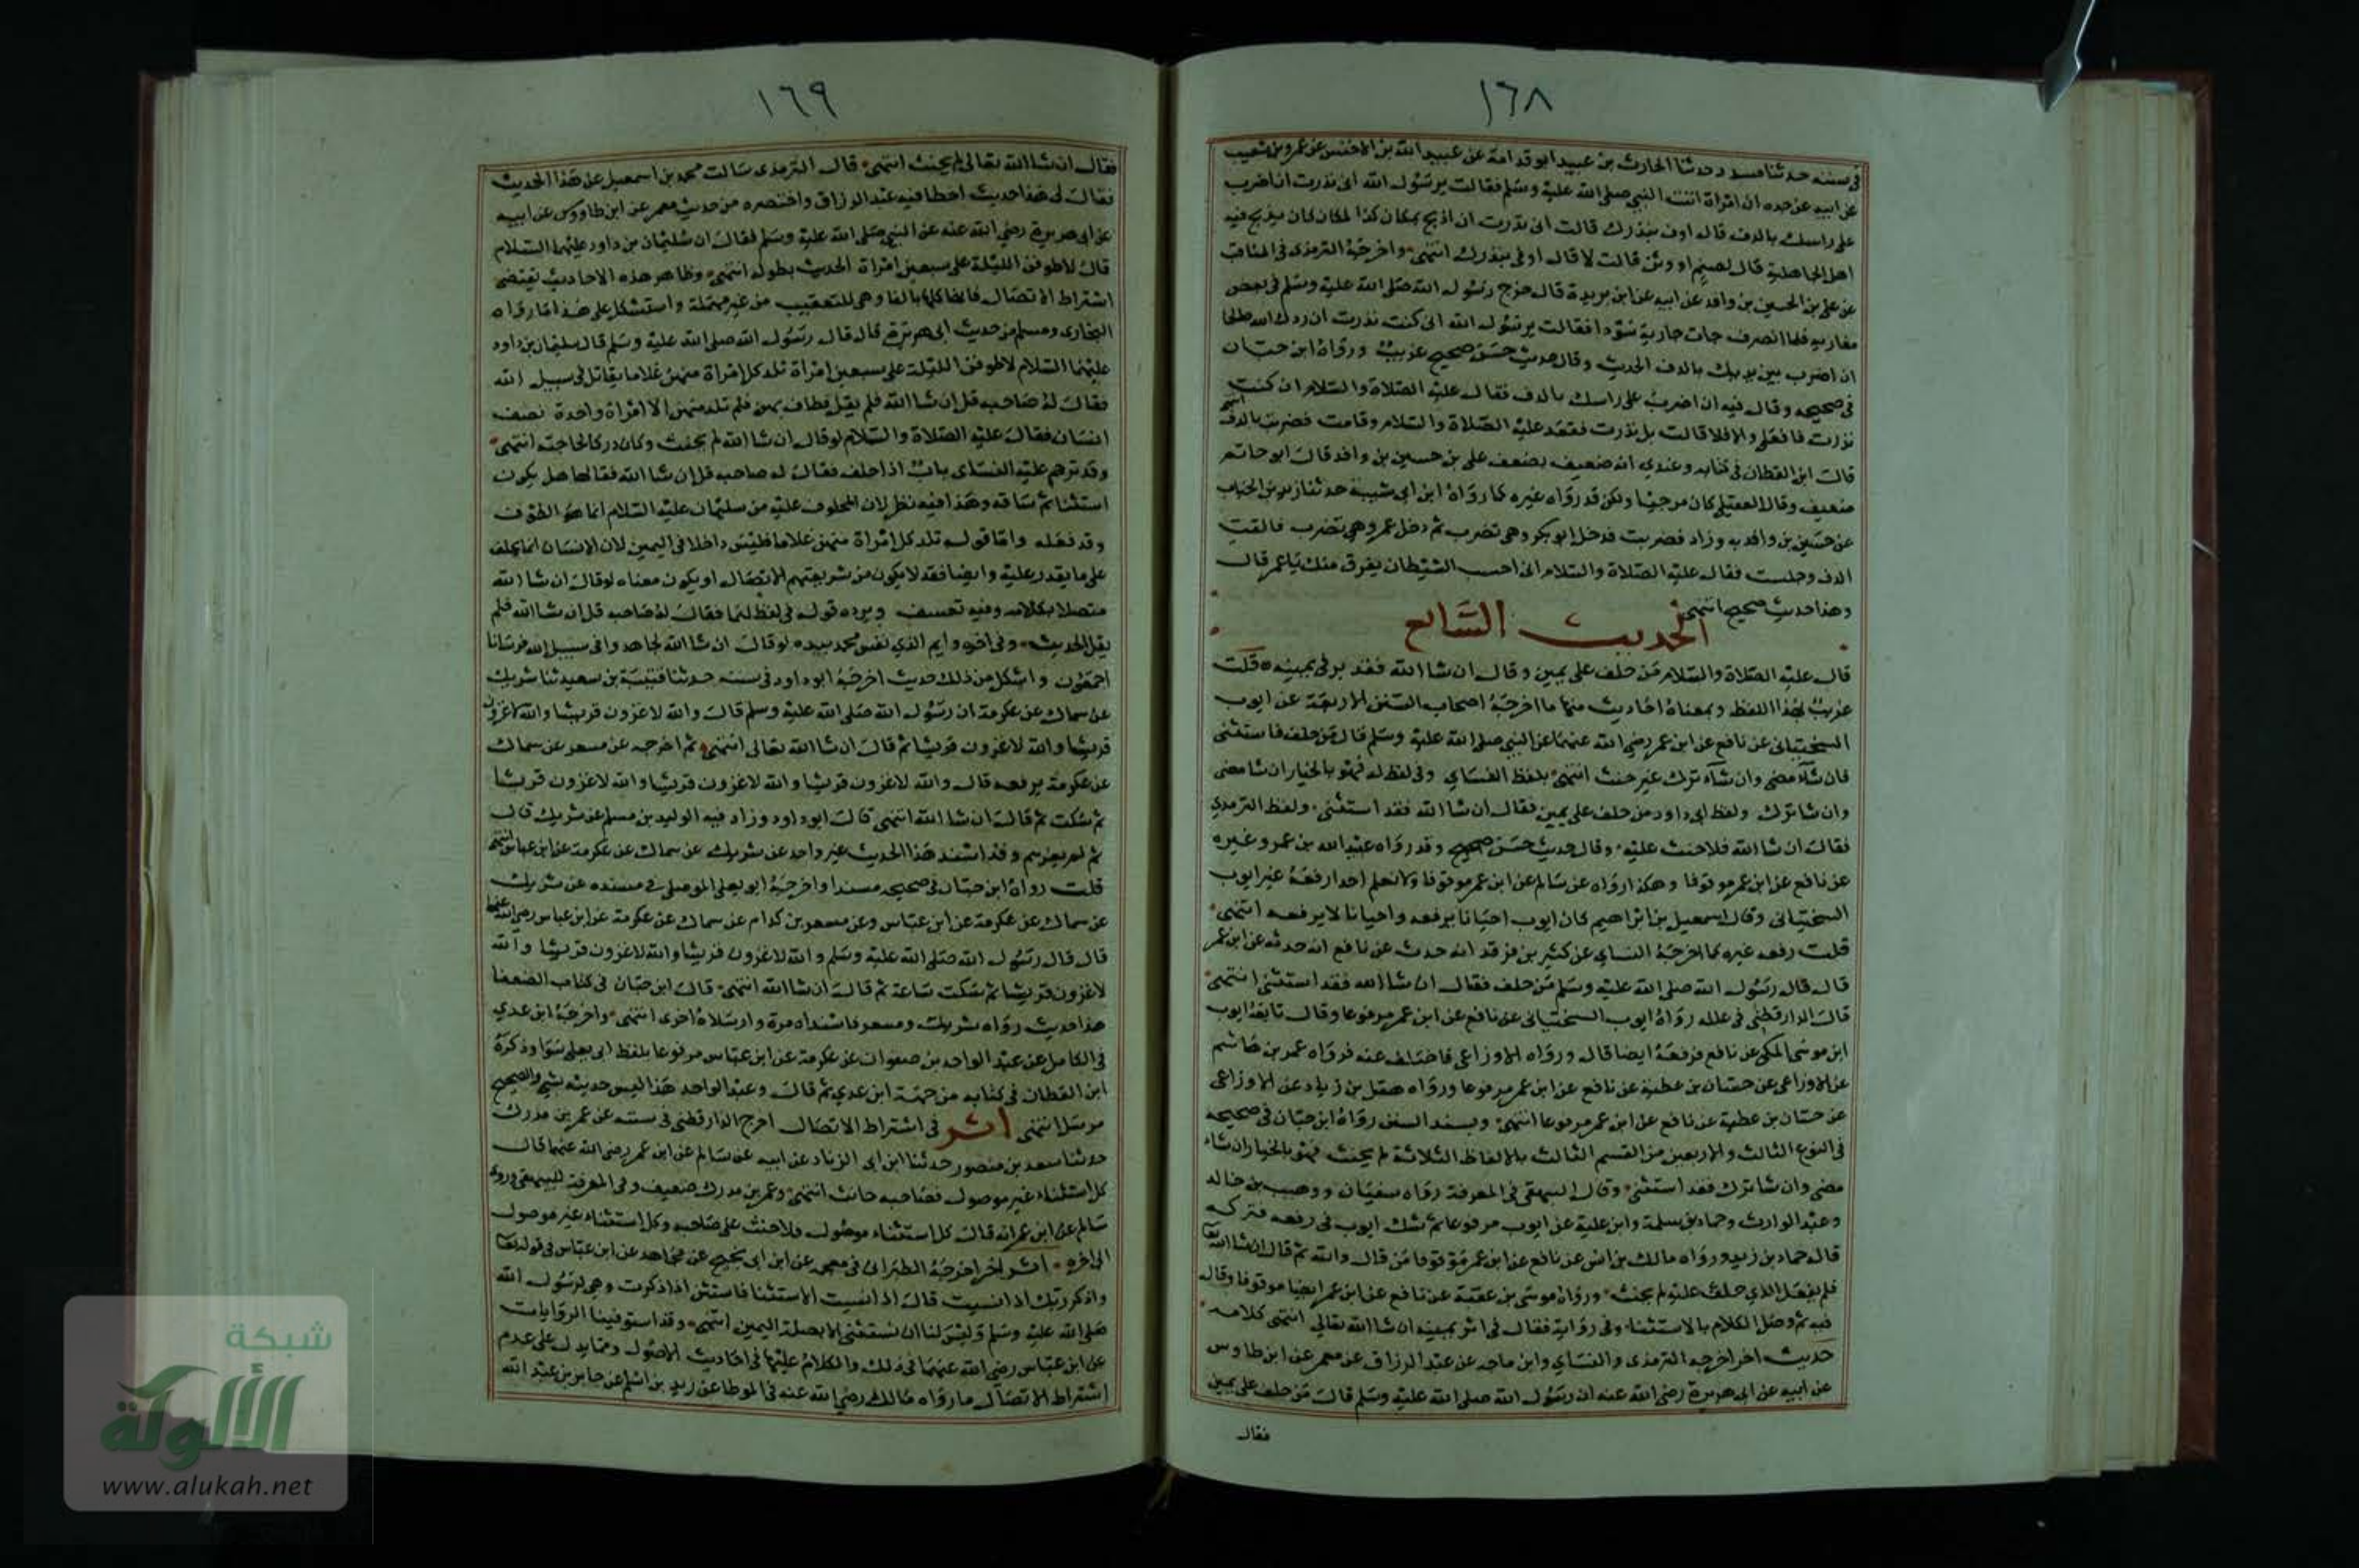 ١٦٨
في سننه حدثنا مسدد حدثنا الحارث بن عبيد ابو قدامة عن عبيد الله بن الاخنس عن عمرو بن شعيب
عن ابيه عن جده ان امراة اتت النبي صلى الله عليه وسلم فقالت يرسول الله اني نذرت ان اضرب
على راسك بالدف قال اوف بنذرك قالت اني نذرت ان اذبح بمكان كذا لمكان كان يذبح فيه
اهل الجاهلية قال لصنم او وثن قالت لا قال اوفي بنذرك انتهى واخرجه الترمذي في المناقب
عن علي بن الحسين بن واقد عن ابيه عن ابن بريدة قال خرج رسول الله صلى الله عليه وسلم في بعض
مغازيه فلما انصرف جات جارية سودا فقالت يرسول الله اني كنت نذرت ان ردك الله صالحا
ان اضرب بين يديك بالدف الحديث وقال حديث حسن صحيح غريب ورواه ابن حبان
في صحيحه وقال فيه ان اضرب على راسك بالدف فقال عليه الصلاة والسلام ان كنت
نذرت فافعلي والا فلا قالت بل نذرت فقعد عليه الصلاة والسلام وقامت فضربت بالدف انتهى
قال ابن القطان في كتابه وعندي انه ضعيف بضعف علي بن حسين بن واقد قال ابو حاتم
ضعيف وقال العقيلي كان مرجيا ولكن قد رواه غيره كما رواه ابن ابي شيبة حدثنا زيد بن الحباب
عن حسين بن واقد به وزاد فضربت فدخل ابو بكر وهي تضرب ثم دخل عمر وهي تضرب فالقت
الدف وجلست فقال عليه الصلاة والسلام اني احسب الشيطان يفرق منك يا عمر قال
وهذا حديث صحيح انتهى
الحديث السابع
قال عليه الصلاة والسلام من حلف على يمين وقال ان شا الله فقد بر في يمينه قلت
غريب بهذا اللفظ وبمعناه احاديث منها ما اخرجه اصحاب السنن الاربعة عن ايوب
السختياني عن نافع عن ابن عمر رضي الله عنهما عن النبي صلى الله عليه وسلم قال من حلف فاستثنى
فان شاء مضى وان شاء ترك غير حنث انتهى بلفظ النساي وفي لفظ له فهو بالخيار ان شا مضى
وان شا ترك ولفظ ابي داود من حلف على يمين فقال ان شا الله فقد استثنى ولفظ الترمذي
فقال ان شا الله فلا حنث عليه وقال حديث حسن صحيح وقد رواه عبيد الله بن عمر وغيره
عن نافع عن ابن عمر موقوفا وهكذا رواه عن سالم عن ابن عمر موقوفا ولا نعلم احدا رفعه غير ايوب
السختياني وقال اسمعيل بن ابراهيم كان ايوب احيانا يرفعه واحيانا لا يرفعه انتهى
قلت رفعه غيره كما اخرجه النساي عن كثير بن فرقد انه حدث عن نافع انه حدثه عن ابن عمر
قال قال رسول الله صلى الله عليه وسلم من حلف فقال ان شا الله فقد استثنى انتهى
قال الدارقطني في علله رواه ايوب السختياني عن نافع عن ابن عمر مرفوعا وقال تابعه ايوب
ابن موسى المكي عن نافع فرفعه ايضا قال ورواه الاوزاعي فاختلف عنه فرواه عمر بن هاشم
عن الاوزاعي عن حسان بن عطية عن نافع عن ابن عمر مرفوعا ورواه هقل بن زياد عن الاوزاعي
عن حسان بن عطية عن نافع عن ابن عمر مرفوعا انتهى وبسند السنن رواه ابن حبان في صحيحه
في النوع الثالث والاربعين من القسم الثالث بالالفاظ الثلاثة لم يحنث فهو بالخيار ان شاء
مضى وان شا ترك فقد استثنى وقال البيهقي في المعرفة رواه سفيان ووهيب بن خالد
وعبد الوارث وحماد بن سلمة وابن علية عن ايوب مرفوعا ثم شك ايوب في رفعه فتركه
قال حماد بن زيد ورواه مالك بن انس عن نافع عن ابن عمر موقوفا من قال والله ثم قال ان شا الله
فلم يفعل الذي حلف عليه لم يحنث ورواه موسى بن عقبة عن نافع عن ابن عمر ايضا موقوفا وقال
فيه ثم وصل الكلام بالاستثنا وفي رواية فقال في اثر يمينه ان شا الله تعالى انتهى كلامه
حديث اخر اخرجه الترمذي والنساي وابن ماجه عن عبد الرزاق عن معمر عن ابن طاوس
عن ابيه عن ابي هريرة رضي الله عنه ان رسول الله صلى الله عليه وسلم قال من حلف على يمين
فقال
١٦٩
فقال ان شا الله تعالى لم يحنث انتهى قال الترمذي سالت محمد بن اسمعيل عن هذا الحديث
فقال لي هذا حديث اخطا فيه عبد الرزاق واختصره من حديث معمر عن ابن طاووس عن ابيه
عن ابي هريرة رضي الله عنه عن النبي صلى الله عليه وسلم فقال ان سليمان بن داود عليهما السلام
قال لاطوفن الليلة على سبعين امراة الحديث بطوله انتهى وظاهر هذه الاحاديث تقتضي
اشتراط الاتصال فانها كلها بالفا وهي للتعقيب من غير مهملة واستشكل على هذا ما رواه
البخاري ومسلم من حديث ابي هريرة قال قال رسول الله صلى الله عليه وسلم قال سليمان بن داود
عليهما السلام لاطوفن الليلة على سبعين امراة تلد كل امراة منهن غلاما يقاتل في سبيل الله
فقال له صاحبه قل ان شا الله فلم يقل فطاف بهن فلم تلد منهن الا امراة واحدة نصف
انسان فقال عليه الصلاة والسلام لو قال ان شا الله لم يحنث وكان دركا لحاجته انتهى
وقد ترجم عليه النساي باب اذا حلف فقال له صاحبه قل ان شا الله فقالها هل يكون
استثنا ثم ساقه وهذا فيه نظر لان المحلوف عليه من سليمان عليه السلام انما هو الطوف
وقد فعله واما قوله تلد كل امراة منهن غلاما فليس داخلا في اليمين لان الانسان انما يحلف
على ما يقدر عليه وايضا فقد لا يكون من شريعتهم الاتصال او يكون معناه لو قال ان شا الله
متصلا بكلامه وفيه تعسف ويرده قوله في لفظ لهما فقال له صاحبه قل ان شا الله فلم
يقل الحديث وفي اخره وايم الذي نفس محمد بيده لو قال ان شا الله لجاهدوا في سبيل الله فرسانا
اجمعون واشكل من ذلك حديث اخرجه ابو داود في سننه حدثنا قتيبة بن سعيد ثنا شريك
عن سماك عن عكرمة ان رسول الله صلى الله عليه وسلم قال والله لاغزون قريشا والله لاغزون
قريشا والله لاغزون قريشا ثم قال ان شا الله تعالى انتهى ثم اخرجه عن مسعر عن سماك
عن عكرمة يرفعه قال والله لاغزون قريشا والله لاغزون قريشا والله لاغزون قريشا
ثم سكت ثم قال ان شا الله انتهى قال ابو داود وزاد فيه الوليد بن مسلم عن شريك قال
ثم لم يغزهم وقد اسند هذا الحديث غير واحد عن شريك عن سماك عن عكرمة عن ابن عباس انتهى
قلت رواه ابن حبان في صحيحه مسندا واخرجه ابو يعلى الموصلي في مسنده عن شريك
عن سماك عن عكرمة عن ابن عباس وعن مسعر بن كدام عن سماك عن عكرمة عن ابن عباس رضي الله عنهما
قال قال رسول الله صلى الله عليه وسلم والله لاغزون قريشا والله لاغزون قريشا والله
لاغزون قريشا ثم سكت ساعة ثم قال ان شا الله انتهى قال ابن حبان في كتاب الضعفا
هذا حديث رواه شريك ومسعر فاسنداه مرة وارسلاه اخرى انتهى واخرجه ابن عدي
في الكامل عن عبد الواحد بن صفوان عن عكرمة عن ابن عباس مرفوعا بلفظ ابي يعلى سوا وذكره
ابن القطان في كتابه من جهة ابن عدي ثم قال وعبد الواحد هذا ليس حديثه بشي والصحيح
مرسل انتهى اثر في اشتراط الاتصال اخرج الدارقطني في سننه عن عمر بن مدرك
حدثنا سعد بن منصور حدثنا ابن ابي الزناد عن ابيه عن سالم عن ابن عمر رضي الله عنهما قال
كل استثناء غير موصول فصاحبه حانث انتهى وعمر بن مدرك ضعيف وفي المعرفة للبيهقي وروى
سالم عن ابن عمر انه قال كل استثناء موصول فلا حنث على صاحبه وكل استثناء غير موصول
الى اخره اثر اخر اخرجه الطبراني في معجمه عن ابن ابي نجيح عن مجاهد عن ابن عباس في قوله تعا
واذكر ربك اذا نسيت قال اذا نسيت الاستثنا فاستثن اذا ذكرت وهي لرسول الله
صلى الله عليه وسلم وليس لنا ان نستثني الا بصلة اليمين انتهى وقد استوفينا الروايات
عن ابن عباس رضي الله عنهما في ذلك والكلام عليها في احاديث الاصول ومما يدل على عدم
اشتراط الاتصال ما رواه مالك رضي الله عنه في الموطا عن زيد بن اسلم عن جابر بن عبد الله
شبكة
الألوكة
www.alukah.net